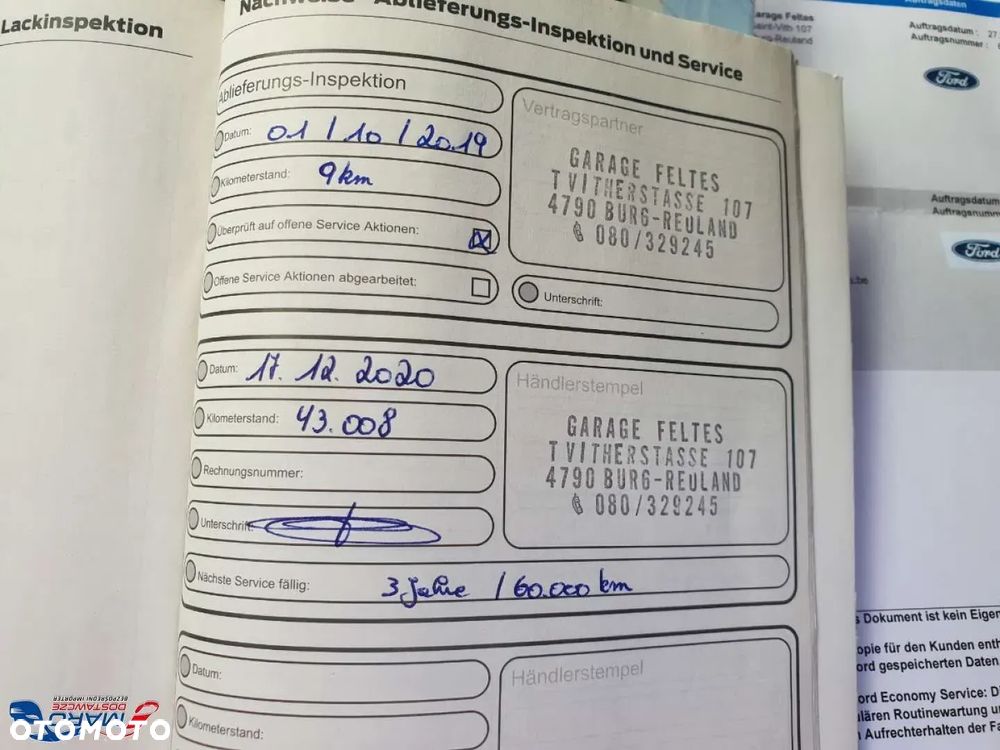 Lackinspektion
Nachweise - Ablieferungs-Inspektion und Service
Ablieferungs-Inspektion
Datum: 01/10/2019
Kilometerstand: 9km
Überprüft auf offene Service Aktionen:
Offene Service Aktionen abgearbeitet:
Vertragspartner
GARAGE FELTES
T VITHERSTASSE 107
4790 BURG-REULAND
080/329245
Unterschrift:
Datum: 17.12.2020
Kilometerstand: 43.008
Rechnungsnummer:
Unterschrift:
Händlerstempel
GARAGE FELTES
T VITHERSTASSE 107
4790 BURG-REULAND
080/329245
Nächste Service fällig: 3 Jahre / 60.000 km
Datum:
Kilometerstand:
Händlerstempel
Auftragsdaten
Garage Feltes
107
Auftragsdatum: 27
Auftragsnummer:
Ford
Auftragsdatum
Auftragsnumm
Ford
.be
Dokument ist kein Eigen
opie für den Kunden enth
ord gespeicherten Daten
ord Economy Service: D
ulären Routinewartung u
Aufrechterhalten der Fa
MARC
DOSTAWCZE
BEZPOŚREDNI IMPORTER
OTOMOTO